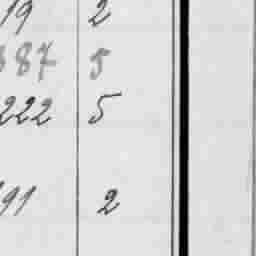 19 2
87 5
222 5
91 2